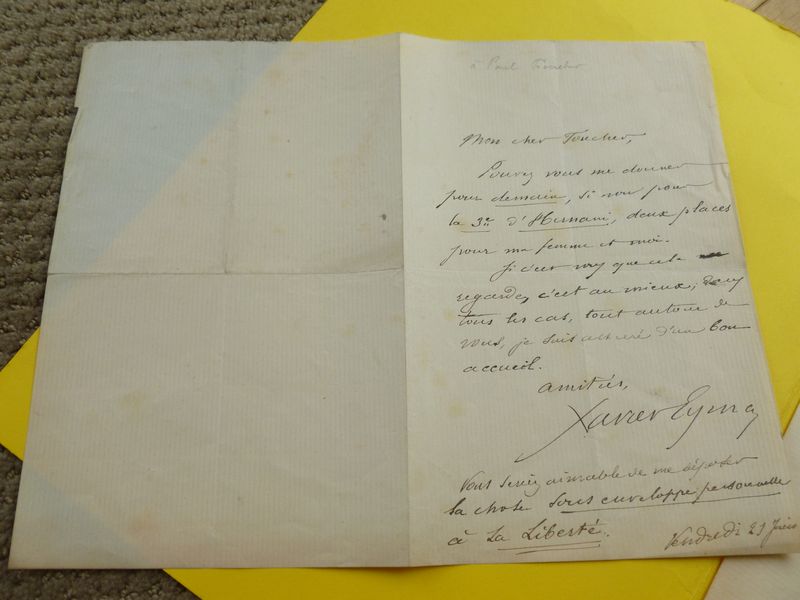 à Paul Foucher
Mon cher Foucher,
Pouvez vous me donner
pour demain, si non pour
la 3e d'Hernani, deux places
pour ma femme et moi.
Si c'est
regarde, c'est au mieux; dans
tous les cas, tout autour de
vous, je suis assuré d'un bon
accueil.
amitiés,
Xavier Eyma
Vous seriez aimable de me
la chose sous enveloppe personnelle
à La Liberté.
Vendredi 21 Juin